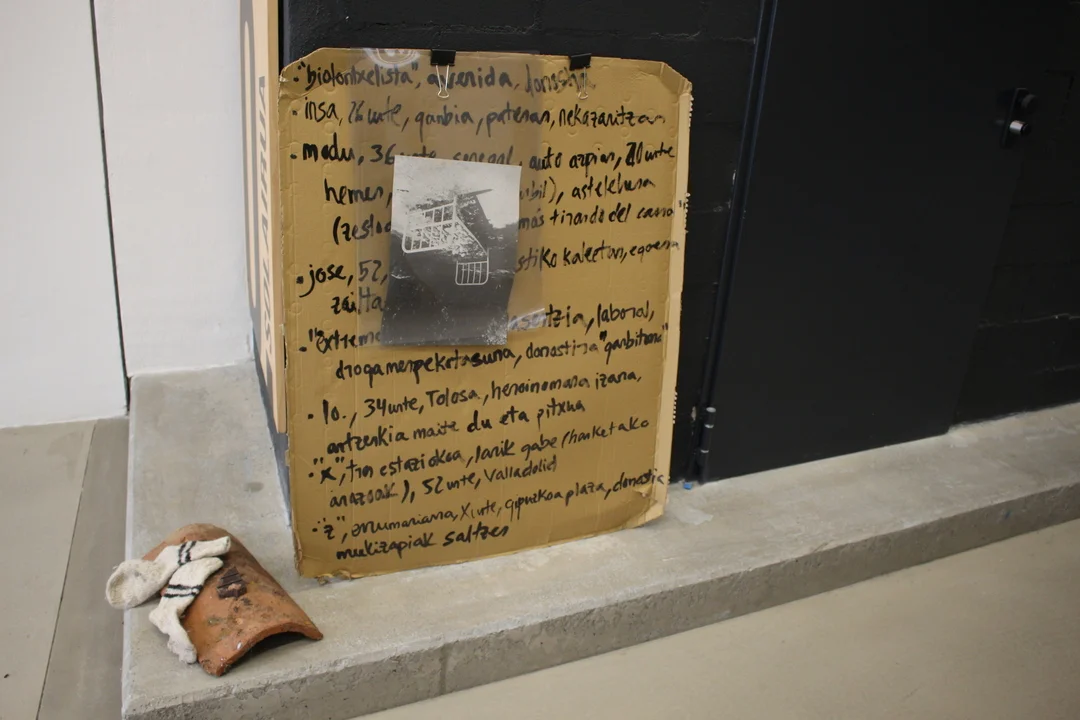 · "biolontxelista", avenida, donostia
· insa, 26 urte, ganbia, pateran, nekazaritzan
· modu, 36 urte, senegal, auto azpian, 20 urte
hemen, bil), astelehena
(zesto más tirando del carro"
· jose, 52, stiko kaleetan, egoera
zaitta
· "extrema sentzia, laboral,
drogamenpekotasuna, donostia "garbitzena"
· Io., 34 urte, Tolosa, heroinomana izana,
antzerkia maite du eta pitxua
· "x", tren estaziokoa, lanik gabe (hanketako
arazoak), 52 urte, Valladolid
· "z", errumaniarra, X urte, gipuzkoa plaza, donostia
mukizapiak saltzen